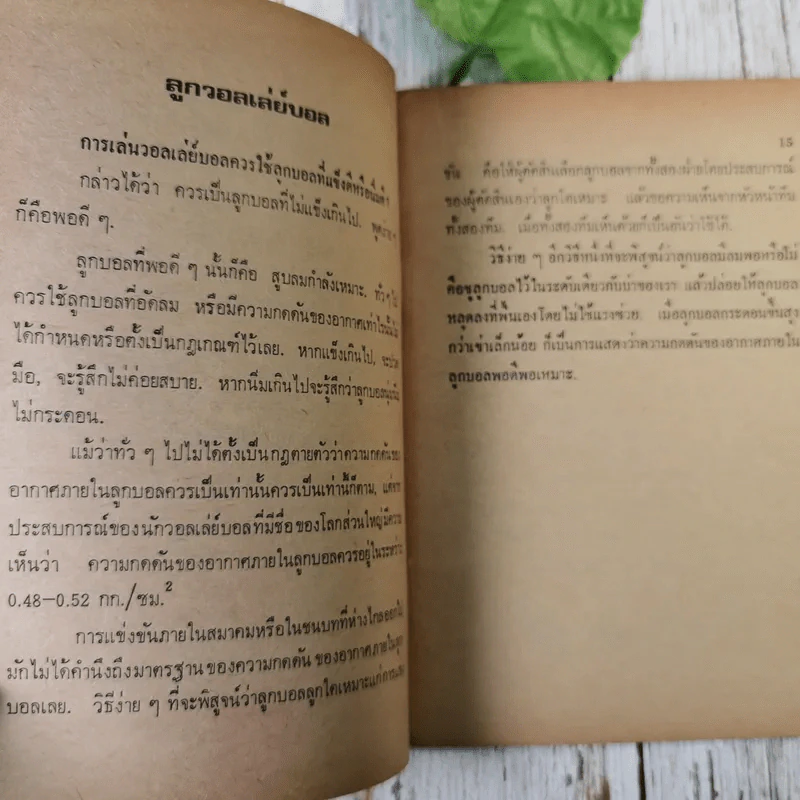 ลูกวอลเล่ย์บอล
การเล่นวอลเล่ย์บอลควรใช้ลูกบอลที่แข็งดีหรือนิ่มดี
กล่าวได้ว่า ควรเป็นลูกบอลที่ไม่แข็งเกินไป.
ก็คือพอดี ๆ.
ลูกบอลที่พอดี ๆ นั้นก็คือ สูบลมกำลังเหมาะ. ทั่ว ๆ ไป
ควรใช้ลูกบอลที่อัดลม หรือมีความกดดันของอากาศเท่าไรนั้น
ได้กำหนดหรือตั้งเป็นกฎเกณฑ์ไว้เลย. หากแข็งเกินไป, จะปวด
มือ, จะรู้สึกไม่ค่อยสบาย. หากนิ่มเกินไปจะรู้สึกว่าลูกบอล
ไม่กระดอน.
แม้ว่าทั่ว ๆ ไปไม่ได้ตั้งเป็นกฎตายตัวว่าความกดดันของ
อากาศภายในลูกบอลควรเป็นเท่านั้นควรเป็นเท่านี้ก็ตาม, แต่จาก
ประสบการณ์ของนักวอลเล่ย์บอลที่มีชื่อของโลกส่วนใหญ่มีความ
เห็นว่า ความกดดันของอากาศภายในลูกบอลควรอยู่ในระหว่าง
0.48–0.52 กก./ซม.²
การแข่งขันภายในสมาคมหรือในชนบทที่ห่างไกลออกไป
มักไม่ได้คำนึงถึงมาตรฐานของความกดดันของอากาศภายในลูก
บอลเลย. วิธีง่าย ๆ ที่จะพิสูจน์ว่าลูกบอลลูกใดเหมาะแก่การ
15
ขัน คือให้ผู้ตัดสินเลือกลูกบอลจากทั้งสองฝ่ายโดยประสบการณ์
ของผู้ตัดสินเองว่าลูกใดเหมาะ แล้วขอความเห็นจากหัวหน้าทีม
ทั้งสองทีม. เมื่อทั้งสองทีมเห็นด้วยก็เป็นอันว่าใช้ได้.
วิธีง่าย ๆ อีกวิธีหนึ่งที่จะพิสูจน์ว่าลูกบอลมีลมพอหรือไม่
คือชูลูกบอลไว้ในระดับเดียวกับบ่าของเรา แล้วปล่อยให้ลูกบอล
หลุดลงที่พื้นเองโดยไม่ใช้แรงช่วย. เมื่อลูกบอลกระดอนขึ้นสูง
กว่าเข่าเล็กน้อย ก็เป็นการแสดงว่าความกดดันของอากาศภายใน
ลูกบอลพอดีพอเหมาะ.